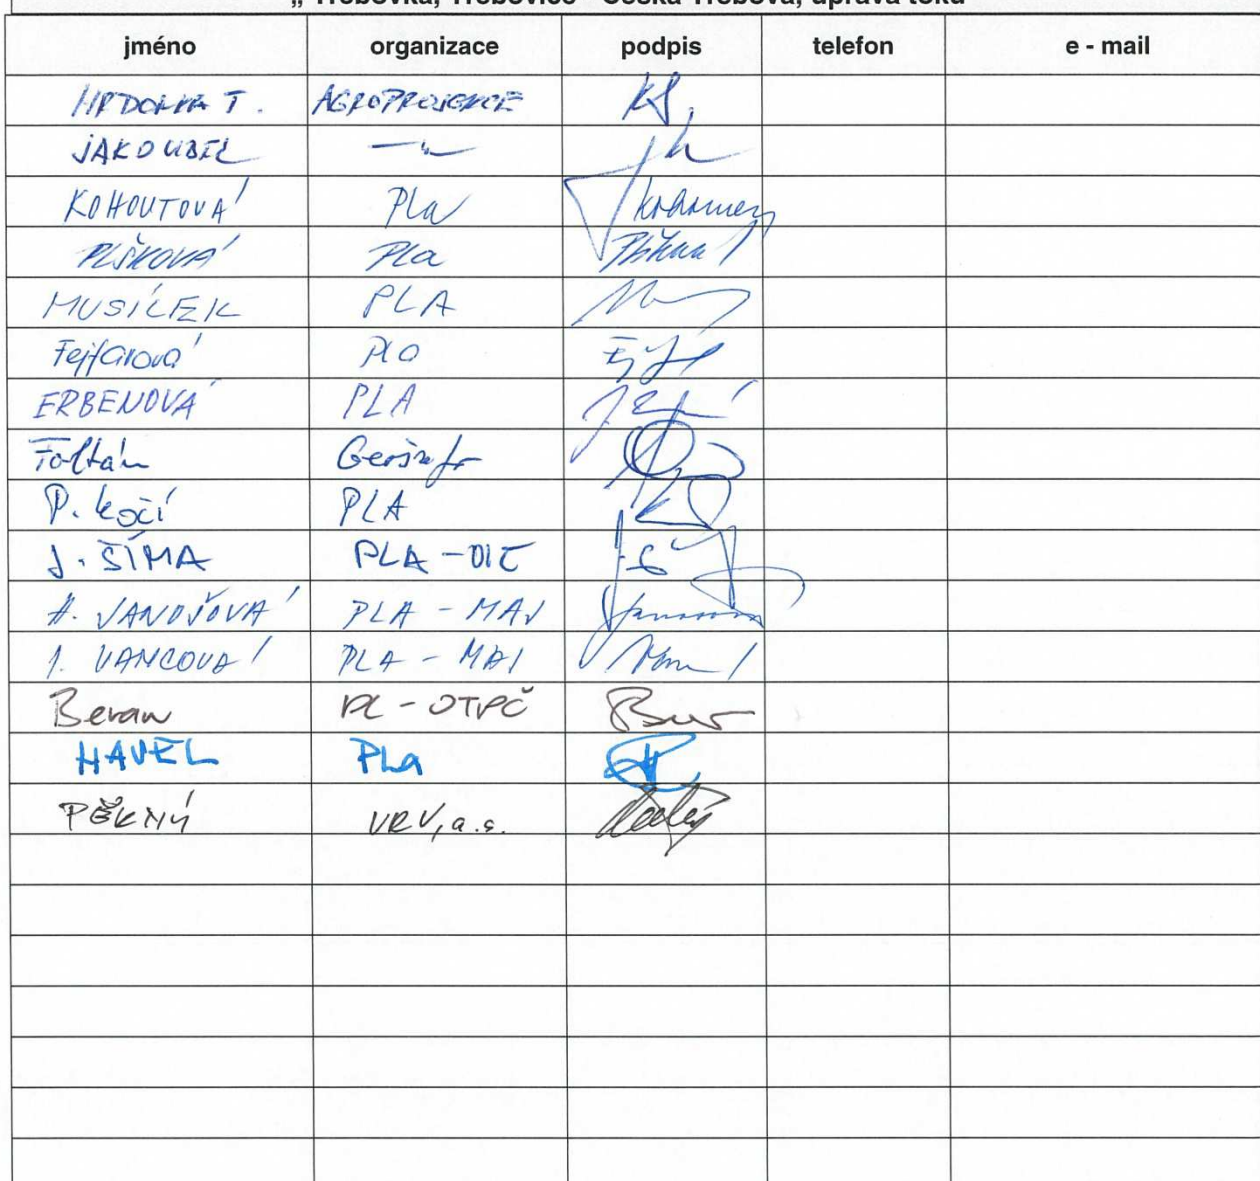 „ Třebovka, Třebovice - Česká Třebová, úprava toku "
jméno organizace podpis telefon e - mail
T. AGROPROJEKCE
JAKOUBEK
KOHOUTOVÁ Pla
PLŠKOVÁ Pla
MUSÍLEK PLA
Fejfarová Pla
ERBENOVÁ PLA
Foltán
P. Kočí PLA
J. ŠÍMA PLA - OIČ
H. JANOŠOVÁ PLA - MAJ
I. VANCOVÁ PLA - MAJ
Beran PL - OTPČ
HAVEL PLa
PĚKNÝ VRV, a.s.